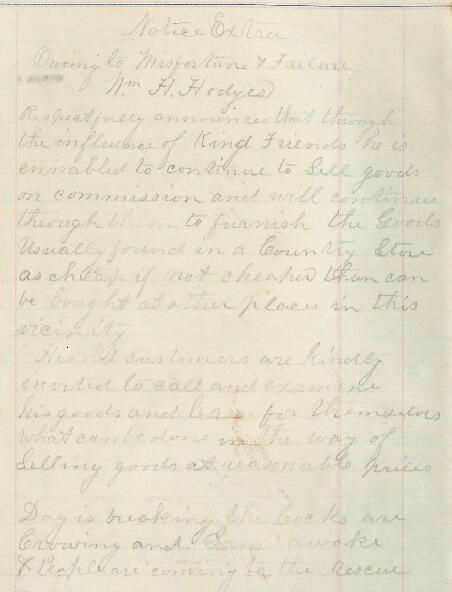 Notice Extra
Owing to Misfortune & Failure
Wm H. Hodges
Respectfully announces that through
the influence of Kind Friends he is
ennabled to continue to Sell goods
on commission and will continue
through them to furnish the Goods
Usually found in a Country Store
as cheap if not cheaper than can
be bought at other places in this
vicinity
His old customers are kindly
invited to call and examine
his goods and learn for themselves
what can be done in the way of
Selling goods at reasonable prices
Day is breaking the Cocks are
Crowing and I am awake
& People are coming to the rescue